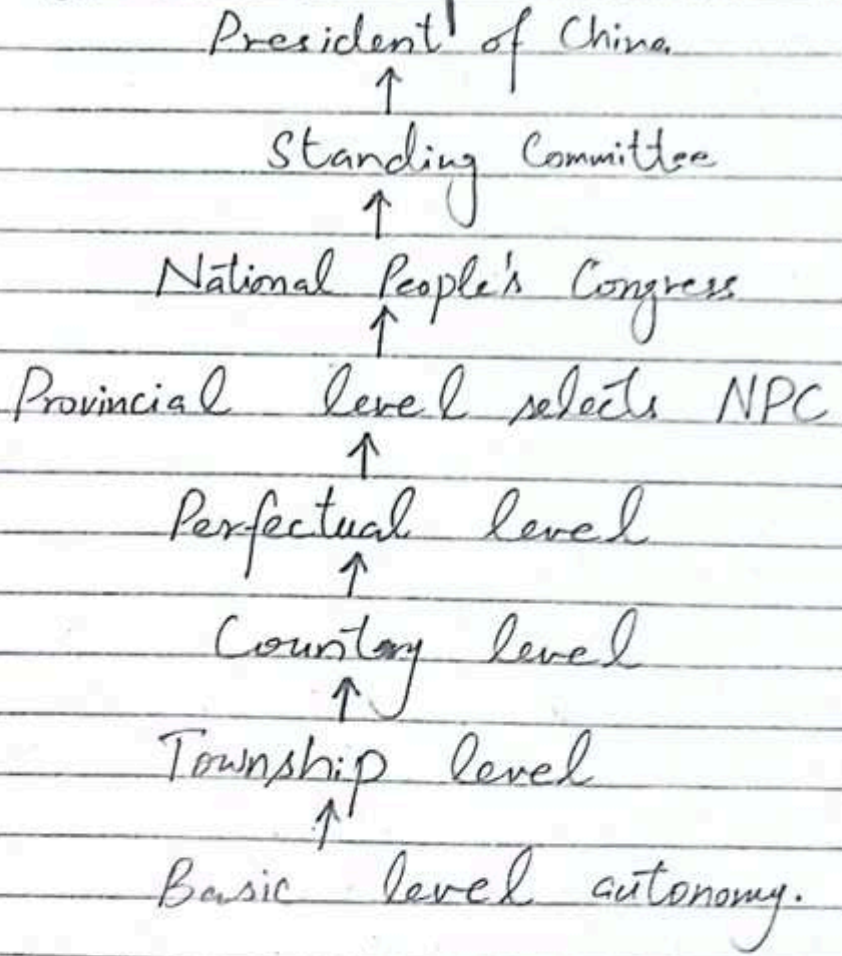 President of China
↑
Standing Committee
↑
National People's Congress
↑
Provincial level selects NPC
↑
Perfectual level
↑
Country level
↑
Township level
↑
Basic level autonomy.